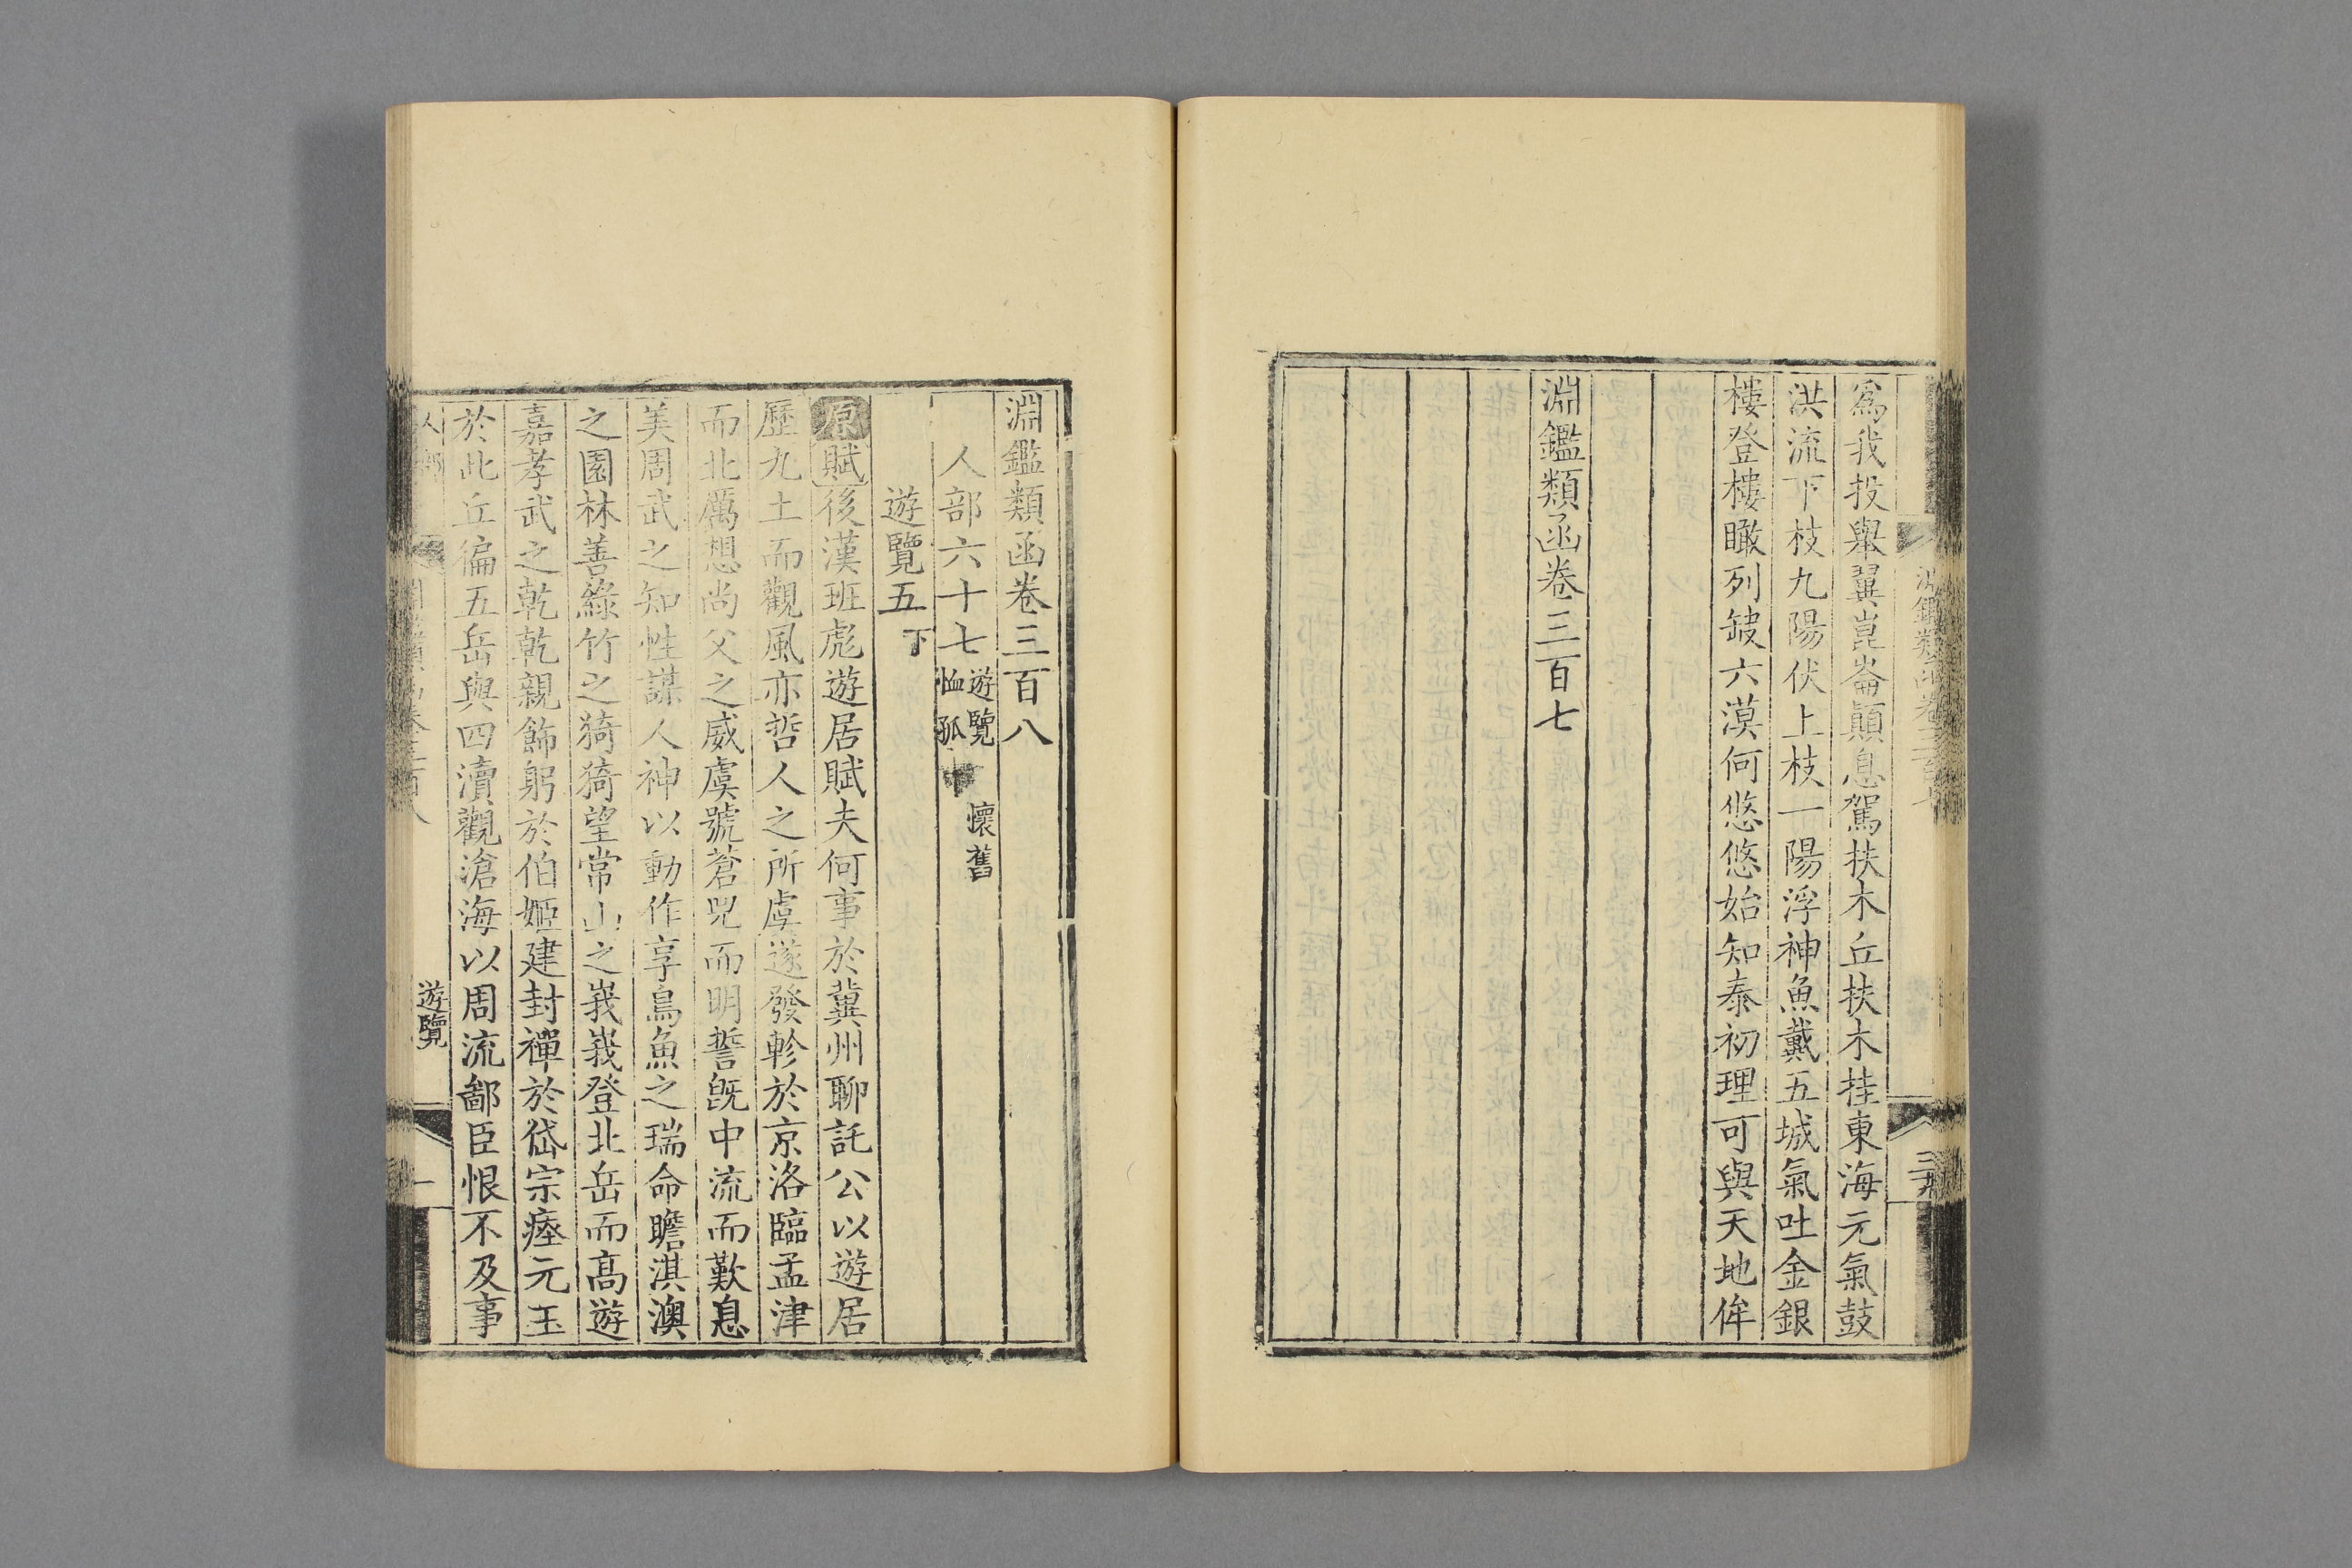 爲我投舉翼崑崙顚息駕扶木丘扶木挂東海元氣鼓
洪流下枝九陽伏上枝一陽浮神魚戴五城氣吐金銀
樓登樓瞰列缺六漠何悠悠始知泰初理可與天地侔
淵鑑類函卷三百七
淵鑑類函卷三百八
人部六十七 遊覽 懷舊 恤孤
遊覽五下
原賦後漢班彪遊居賦夫何事於冀州聊託公以遊居
歷九土而觀風亦哲人之所虞遂發軫於京洛臨孟津
而北厲想尚父之威虞號蒼兕而明誓旣中流而歎息
美周武之知性謀人神以動作享鳥魚之瑞命瞻淇澳
之園林善綠竹之猗猗望常山之峩峩登北岳而高遊
嘉孝武之乾乾親飾躬於伯姬建封禪於岱宗瘞元玉
於此丘徧五岳與四瀆觀滄海以周流鄙臣恨不及事
遊覽
一